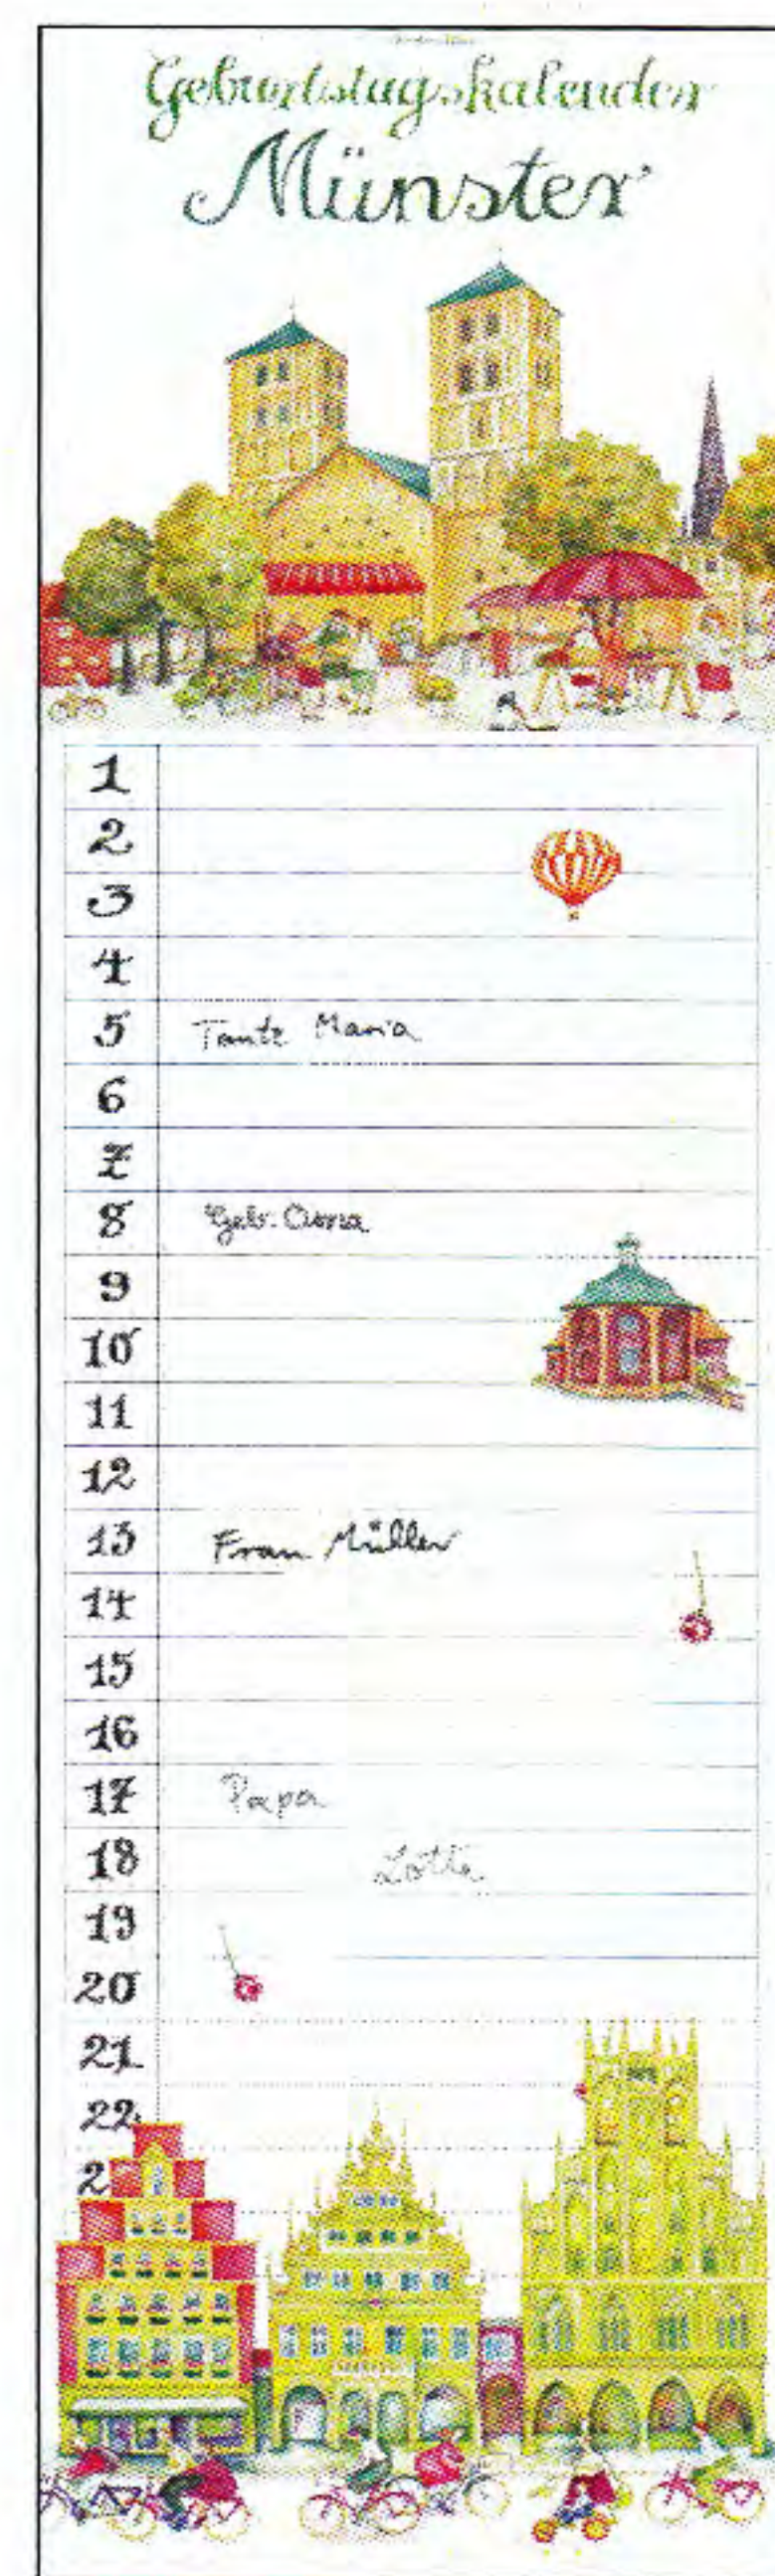 Geburtstagskalender
Münster
1
2
3
4
5 Tante Maria
6
7
8 Geb. Oma
9
10
11
12
13 Frau Müller
14
15
16
17 Papa
18 Lotte
19
20
21
22
2